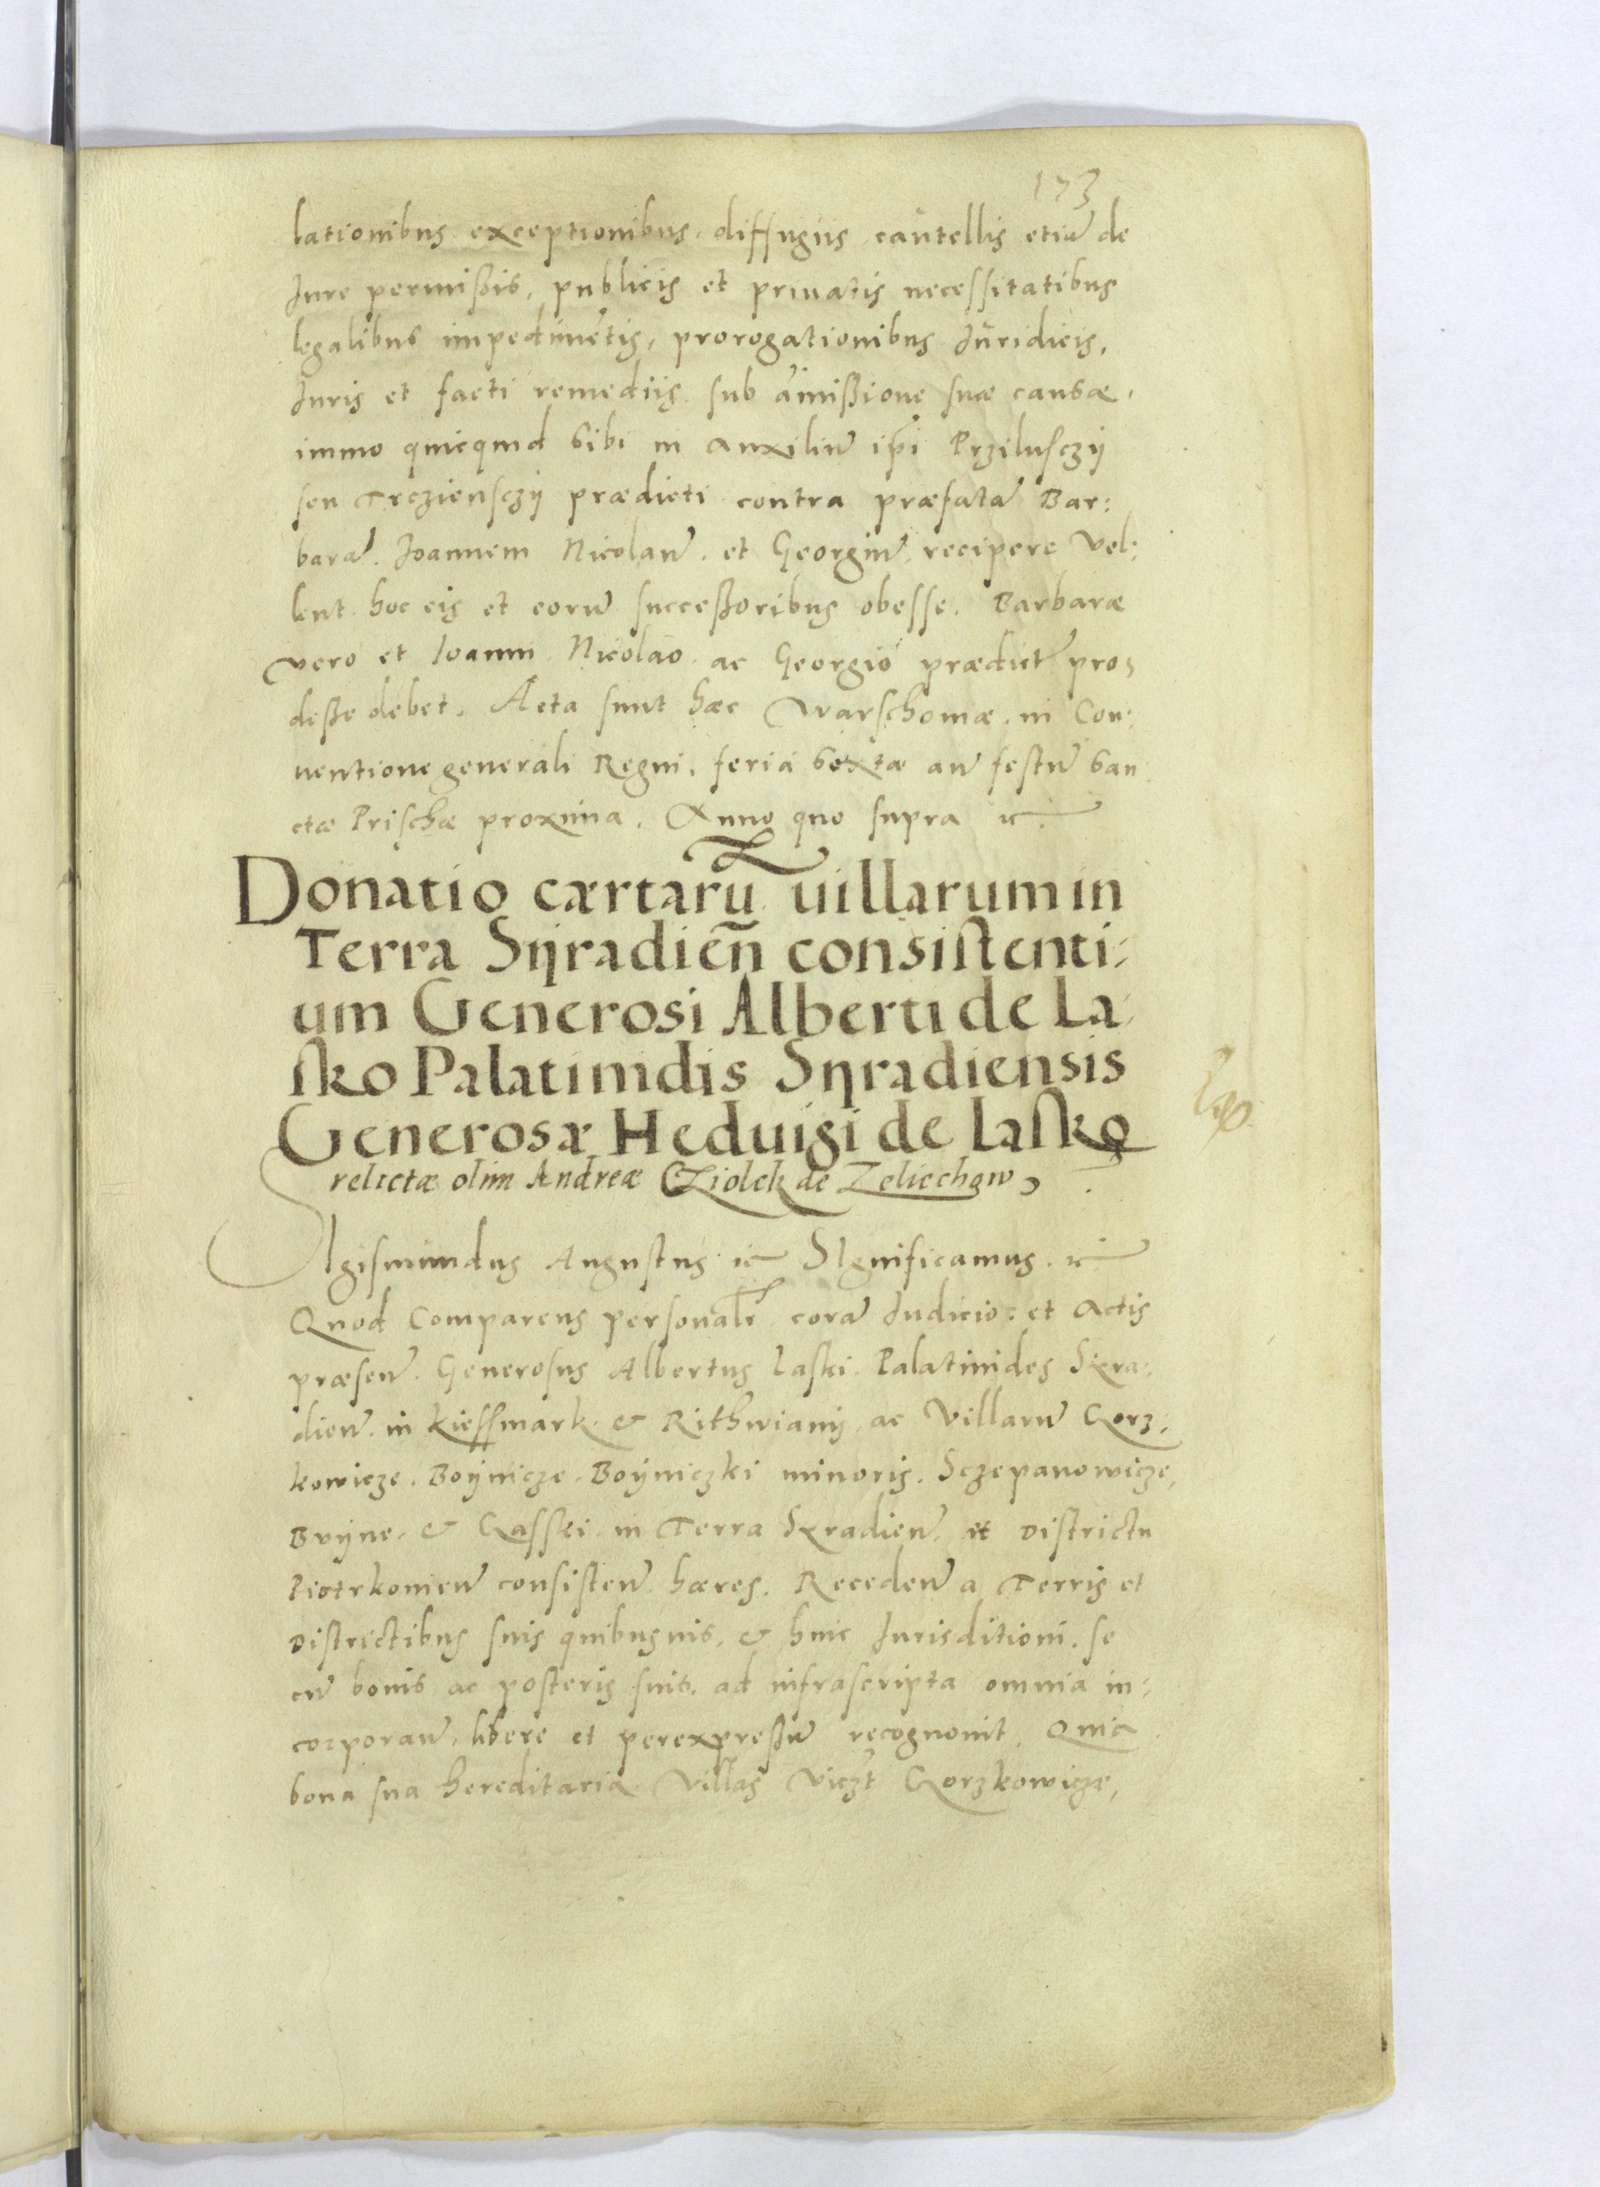 173
lationibus exceptionibus diffugiis cautellis etiam̃ de
Iure permissis, publicis et priuatis necessitatibus
legalibus impedimẽtis, prorogationibus Iuridicis,
Iuris et facti remediis sub amissione suæ causæ,
immo quicquid sibi in auxiliũ ip̃i Przilusczÿ
seu Trczienscżÿ prædicti contra præfatã Bar:
barã Ioannem Nicolaũ et Georgiũ recipere vel:
lent hoc eis et eorũ successoribus obesse. Barbaræ
vero et Ioanni Nicolao ac Georgio prædict̃ pro,
desse debet. Acta sunt hæc Warschouiæ in Con:
uentione generali Regni, feria sexta añ festũ san
ctæ Prischæ proxima. Anno quo supra ꝛc
Donatio cærtarũ uillarum in
Terra Sÿradieñ consistenti:
um Generosi Alberti de La
sko Palatinidis Sÿradiensis
Generosæ Heduigi de Lasko
relictæ olim Andreæ CZiolek de Zeliechow,
SIgismundus Augustus ꝛc SIgnificamus ꝛc
Quod Comparens personalr̃ corã Iudicio et Actis
præseñ Generosus Albertus Laski Palatinides Syra:
dieñ in Kiessmark & Rithwianÿ ac Villarũ Gorz,
kowicze. Boÿnicze Boÿniczki minoris. Sczepanowicze,
Buÿne & Gasski in Terra Syradieñ et Districtu
Piotrkouieñ consisteñ hæres. Recedeñ a Terris et
Districtibus suis quibusuis, & huic Iurisditioni se
cũ bonis ac posteris suis ad infrascripta omnia in:
corporañ libere et per expressũ recognouit Quia
bona sua hereditaria Villas viczt̃ Gorzkowicze,